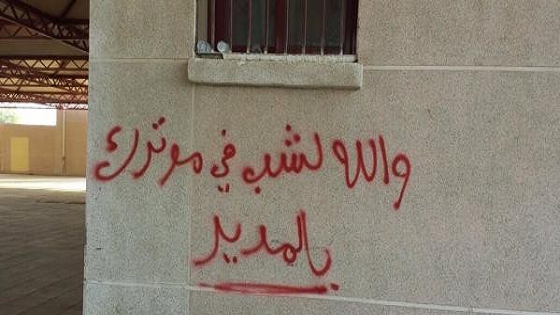 والله لشب في موترك
بالمديد